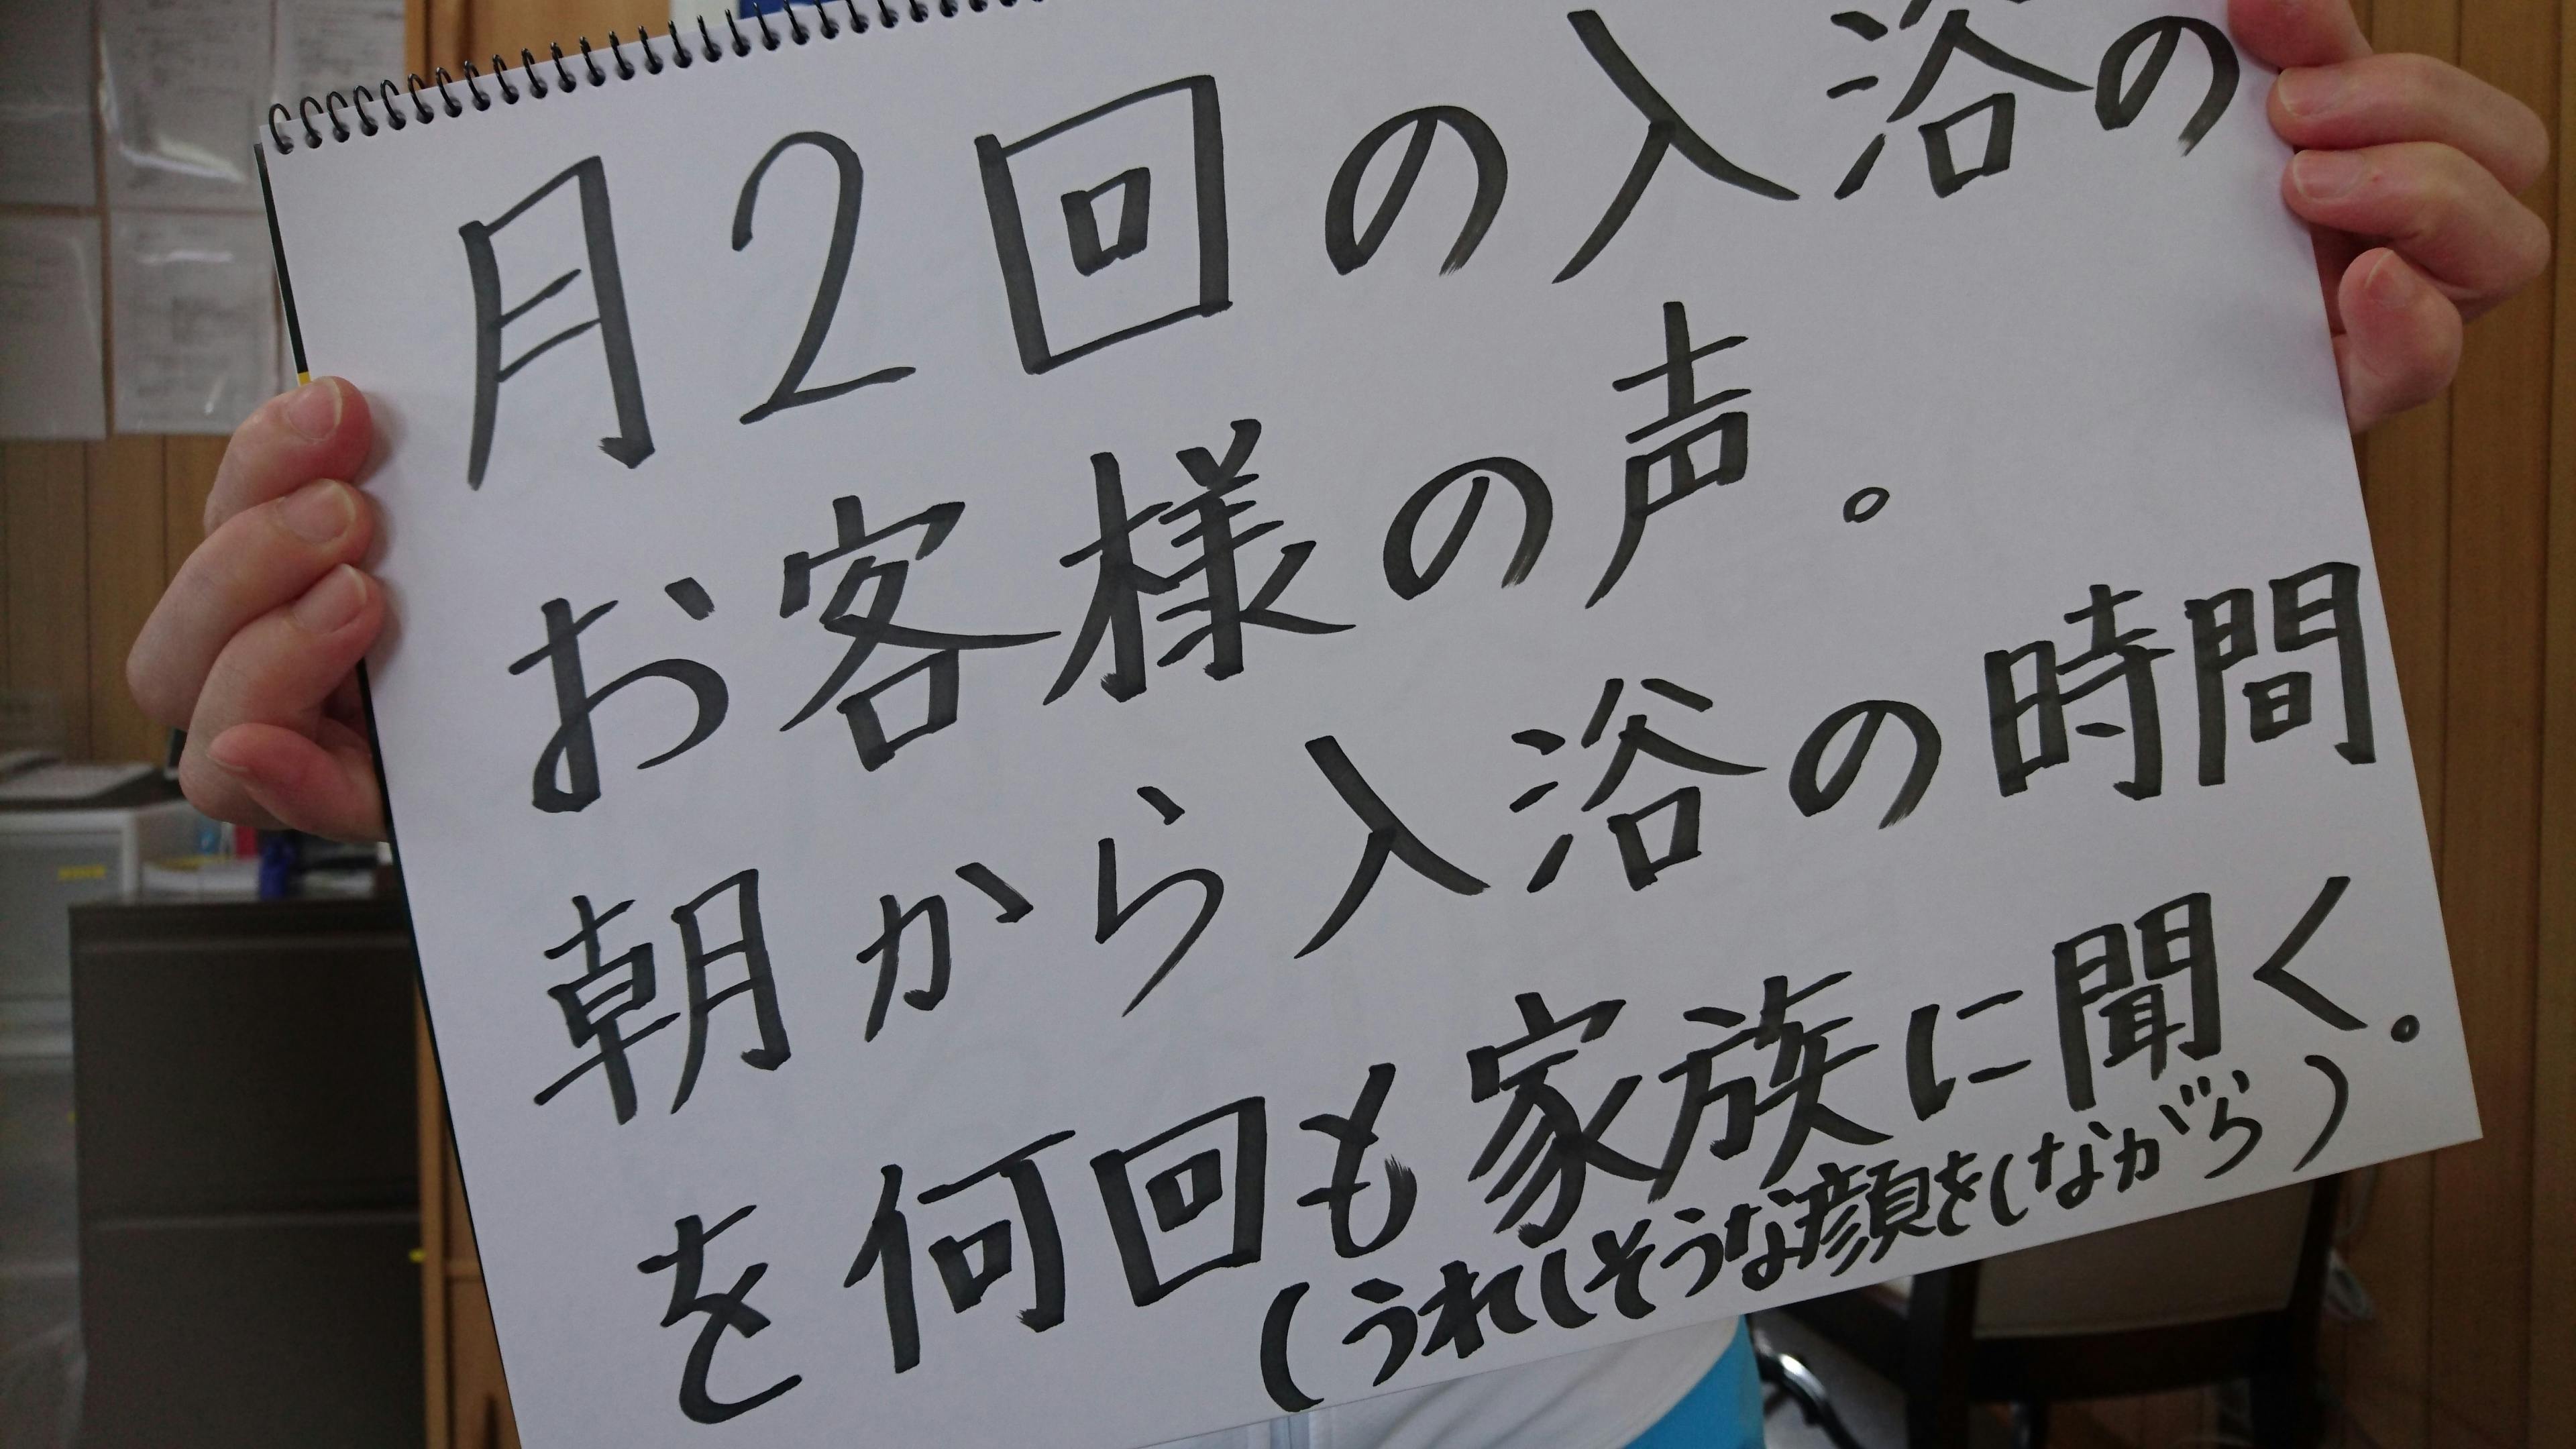 月2回の入浴の
お客様の声。
朝から入浴の時間
を何回も家族に聞く。
(うれしそうな顔をしながら)